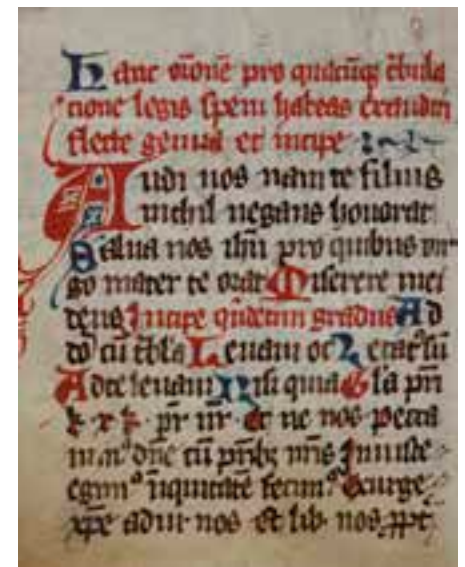 Hanc or̄onē pro quacūqꝫ t̄bula
cione legis spem habeas
flecte genua et incipe
Audi nos nam te filius
nichil negans honorat
Salua nos ihū pro quibus vir
go mater te orat Miserere mei
deus Incipe gradus Ad d
cū Leuaui oc
Ad te leuaui Nisi quia Gl̄a pr̄i
k x k pr̄ nr̄ Et ne nos
dn̄e cū nr̄is Iniuste
egim᷒ iniquitatē fecim᷒ Exurge
xp̄e adiu nos Et lib nos ppt